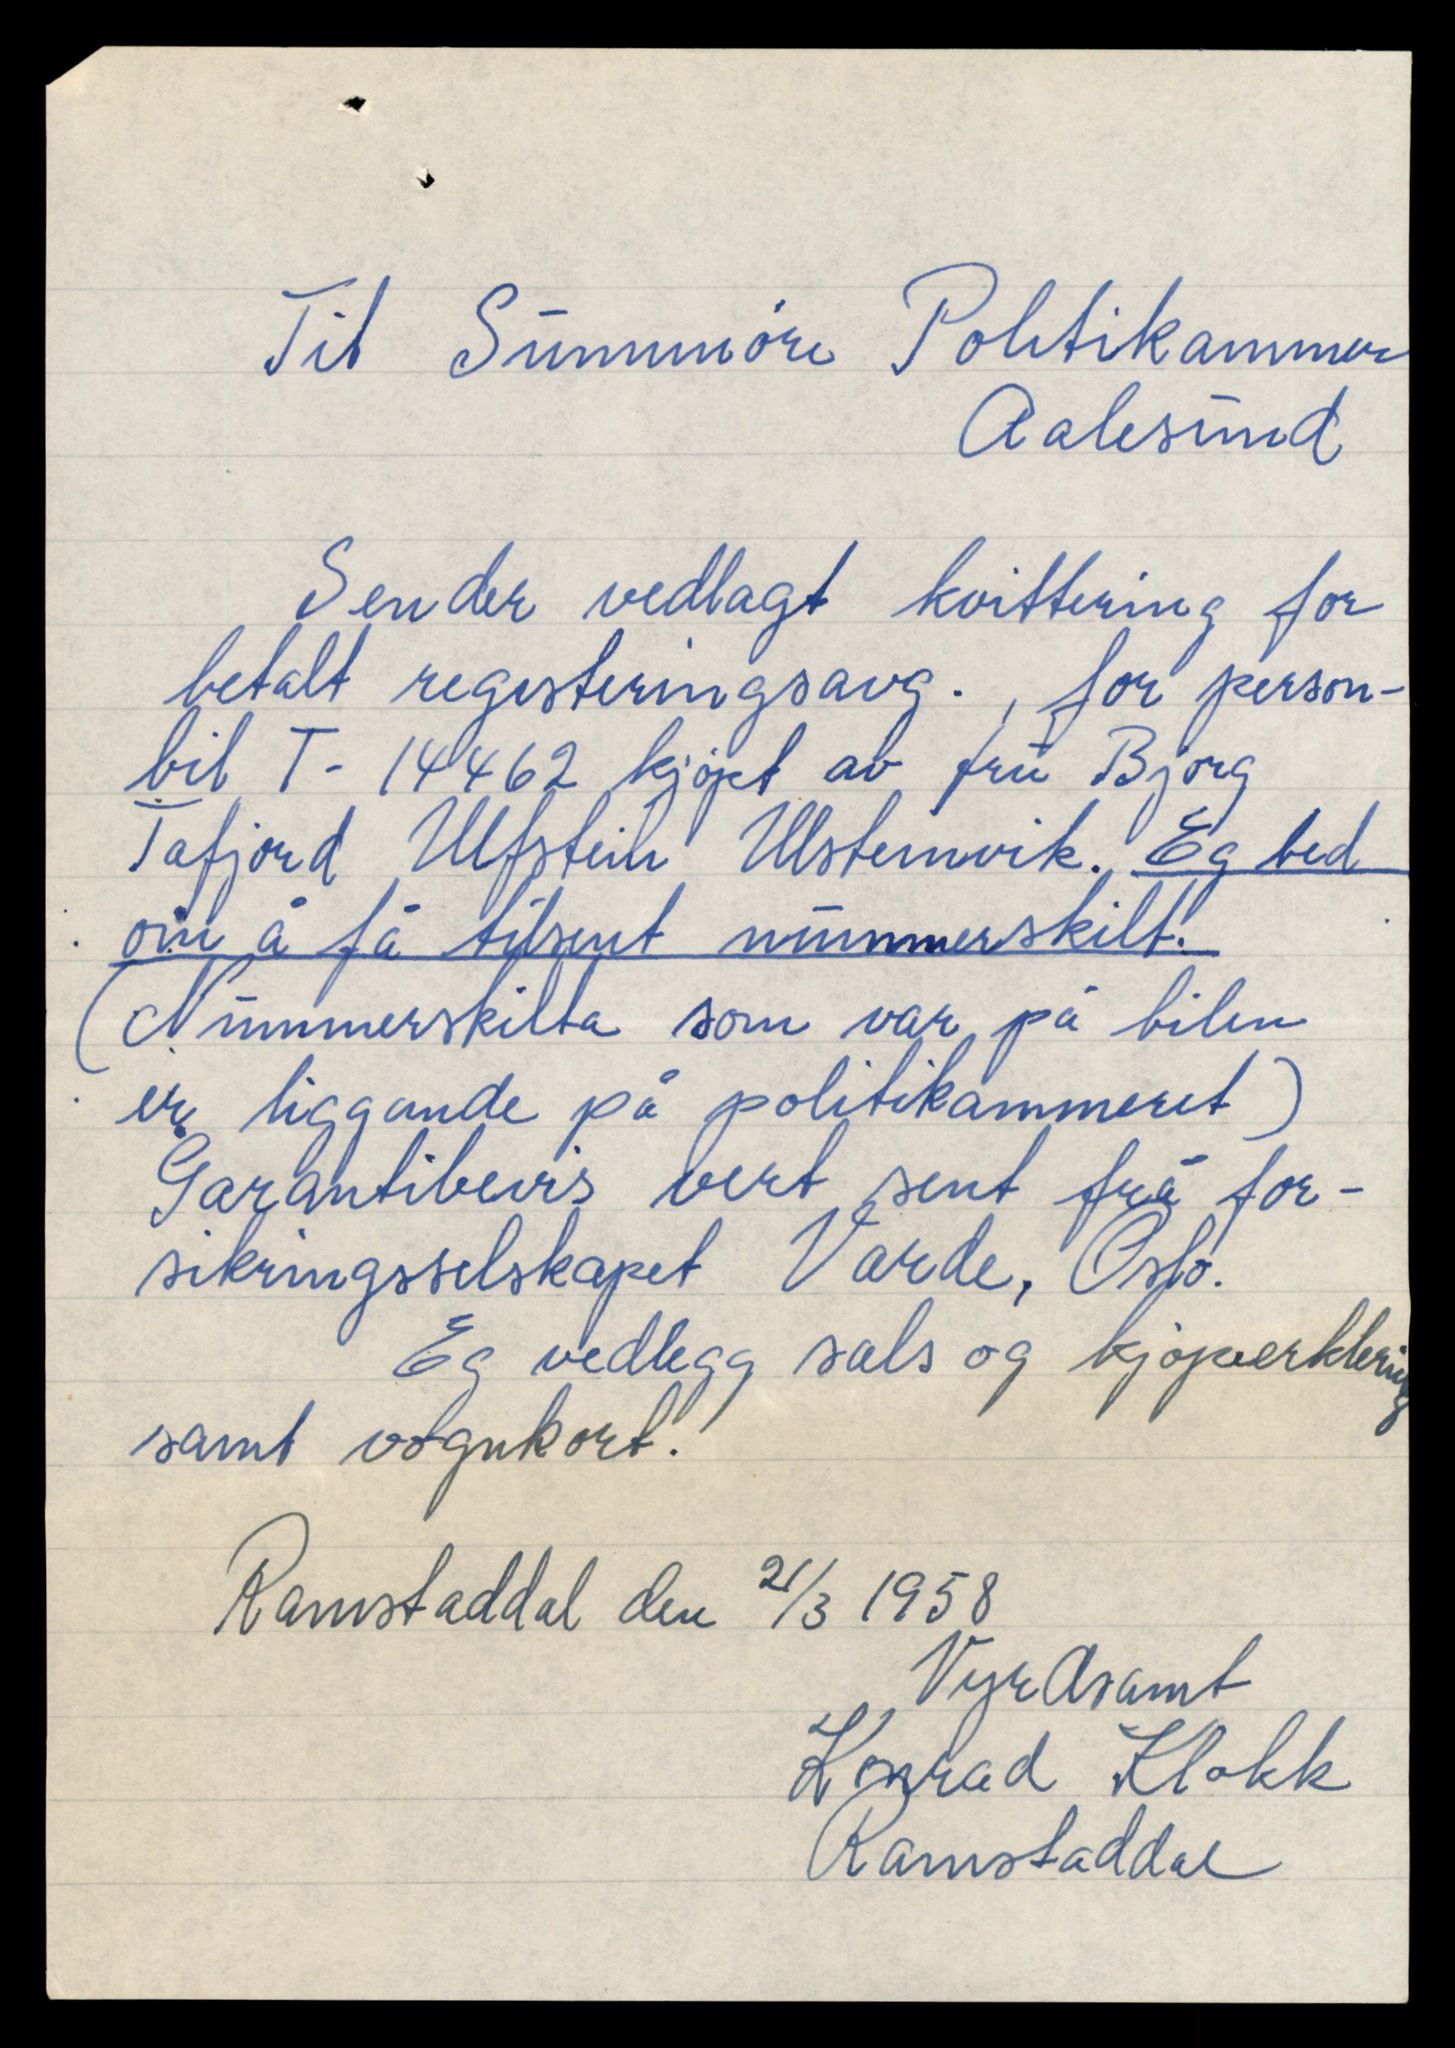 Til Sunnmöre Politikammer
Aalesund
Sender vedlagt kvittering for
betalt registeringsavg., for person-
bil T- 14462 kjöpt av fru Bjørg
Tafjord Ulfstein Ulsteinvik. Eg bed
om å få tilsent nummerskilt.
(Nummerskilta som var på bilen
er liggande på politikammeret)
Garantibevis vert sent frå for-
sikringsselskapet Varde, Oslo.
Eg vedlegg sals og kjöpeerklering
samt vognkort.
Ramstaddal den 21/3 1958
Vyrdsamt
Konrad Klokk
Ramstaddal